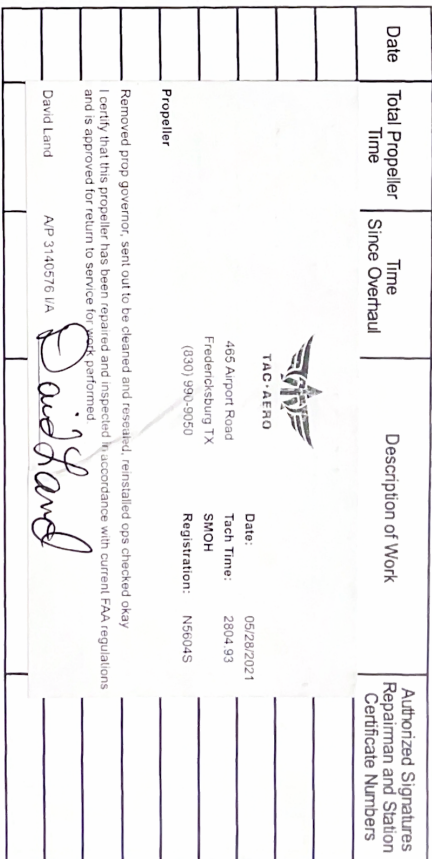 Date
Total Propeller
Time
Time
Since Overhaul
Description of Work
Authorized Signatures
Repairman and Station
Certificate Numbers
TAC•AERO
465 Airport Road
Fredericksburg TX
(830) 990-9050
Date: 05/28/2021
Tach Time: 2804.93
SMOH
Registration: N5604S
Propeller
Removed prop governor, sent out to be cleaned and resealed, reinstalled ops checked okay
I certify that this propeller has been repaired and inspected in accordance with current FAA regulations
and is approved for return to service for work performed
David Land A/P 3140576 I/A David Land